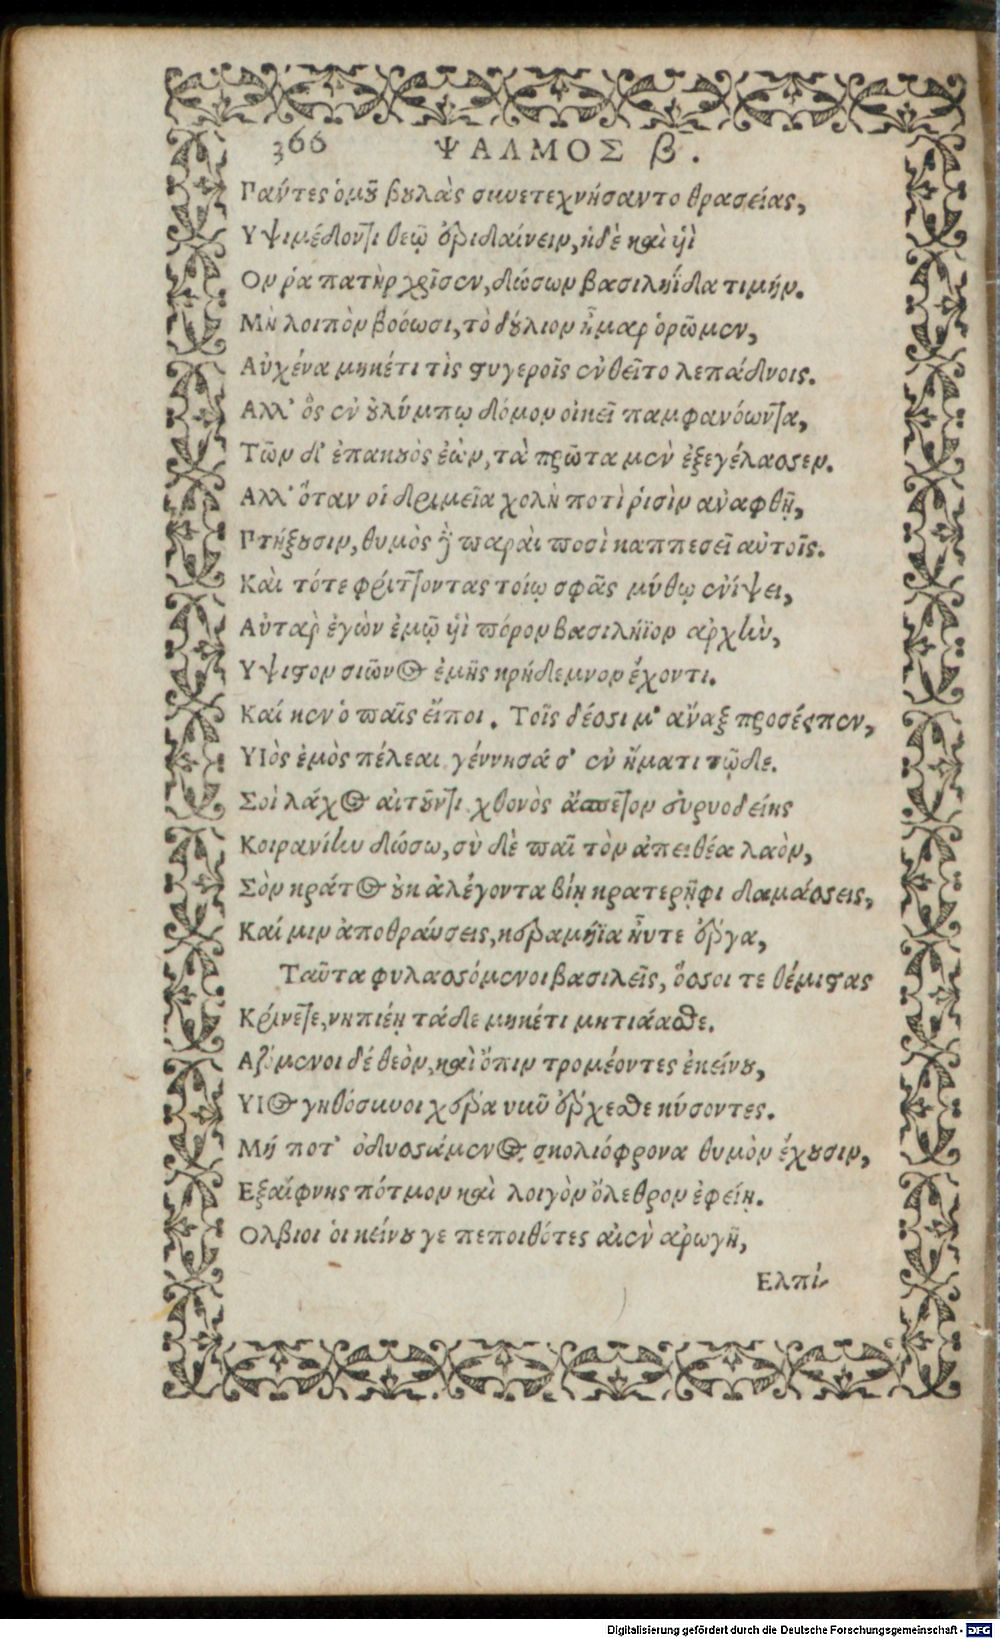 366 ΨΑΛΜΟΣ β.
Πάντες ὁμοῦ βουλὰς συνετεχνήσαντο θρασείας,
Υψιμέδοντι θεῷ ἐριδαίνειν, ἠδὲ καὶ υἱὶ
Ον ῥα πατὴρ χρῖσεν, δώσων βασιληΐδα τιμήν.
Μὴ λοιπὸν βοόωσι, τὸ δούλιον ἦμαρ ὁρῶμεν,
Αὐχένα μηκέτι τὶς στυγεροῖς ἐνθεῖτο λεπάδνοις.
Αλλ' ὃς ἐν οὐλύμπῳ δόμον οἰκεῖ παμφανόωντα,
Τῶν δ' ἐπακουὸς ἐὼν, τὰ πρῶτα μὲν ἐξεγέλασσεν.
Αλλ' ὅταν οἱ δριμεῖα χολὴ ποτὶ ῥισὶν αναφθῇ,
Πτήξουσιν, θυμὸς ἢ παραὶ ποσὶ καππεσεῖ αὐτοῖς.
Καὶ τότε φρίττοντας τοίῳ σφᾶς μύθῳ ἐνίψει,
Αὐταρ ἐγὼν ἐμῷ υἱὶ πόρον βασιλήϊον αρχὴν,
Υψιστον σιῶνος ἐμῆς κρήδεμνον ἔχοντι.
Καί κεν ὁ παῖς εἴποι. Τοῖς δέ σσι μ' αναξ προσέςπεν,
ΥΙὸς ἐμὸς πέλεαι γέννησά σ' ἐν ἤματι τῷδε.
Σοὶ λάχος αἰτοῦντι χθονὸς ἄσπετον εὐρυοδείης
Κοιρανίην δώσω, σὺ δὲ παῖ τὸν ἀπειθέα λαὸν,
Σὸν κράτος οὐκ ἀλέγοντα βίῃ κρατερῆφι δαμάσσεις,
Καί μιν ἀποθραύσεις, κεραμήϊα ἠΰτε ἔργα,
Ταῦτα φυλασσόμενοι βασιλεῖς, ὅσσοι τε θέμιστας
Κρίνετε, νηπιέῃ τάδε μηκέτι μητιάασθε.
Αζόμενοι δέ θεὸν, καὶ ὄπιν τρομέοντες ἐκείνου,
ΥΙος γηθόσυνοι χερα νῦ ἔρχεσθε κύσοντες.
Μή ποτ' ὀδυσσάμενος σκολιόφρονα θυμὸν ἔχουσιν,
Εξαίφνης πότμον καὶ λοιγὸν ὄλεθρον ἐφείῃ.
Ολβιοι ὁι κείνου γε πεποιθότες αἰὲν αρωγῇ,
Ελπί-
Digitalisierung gefördert durch die Deutsche Forschungsgemeinschaft - DFG